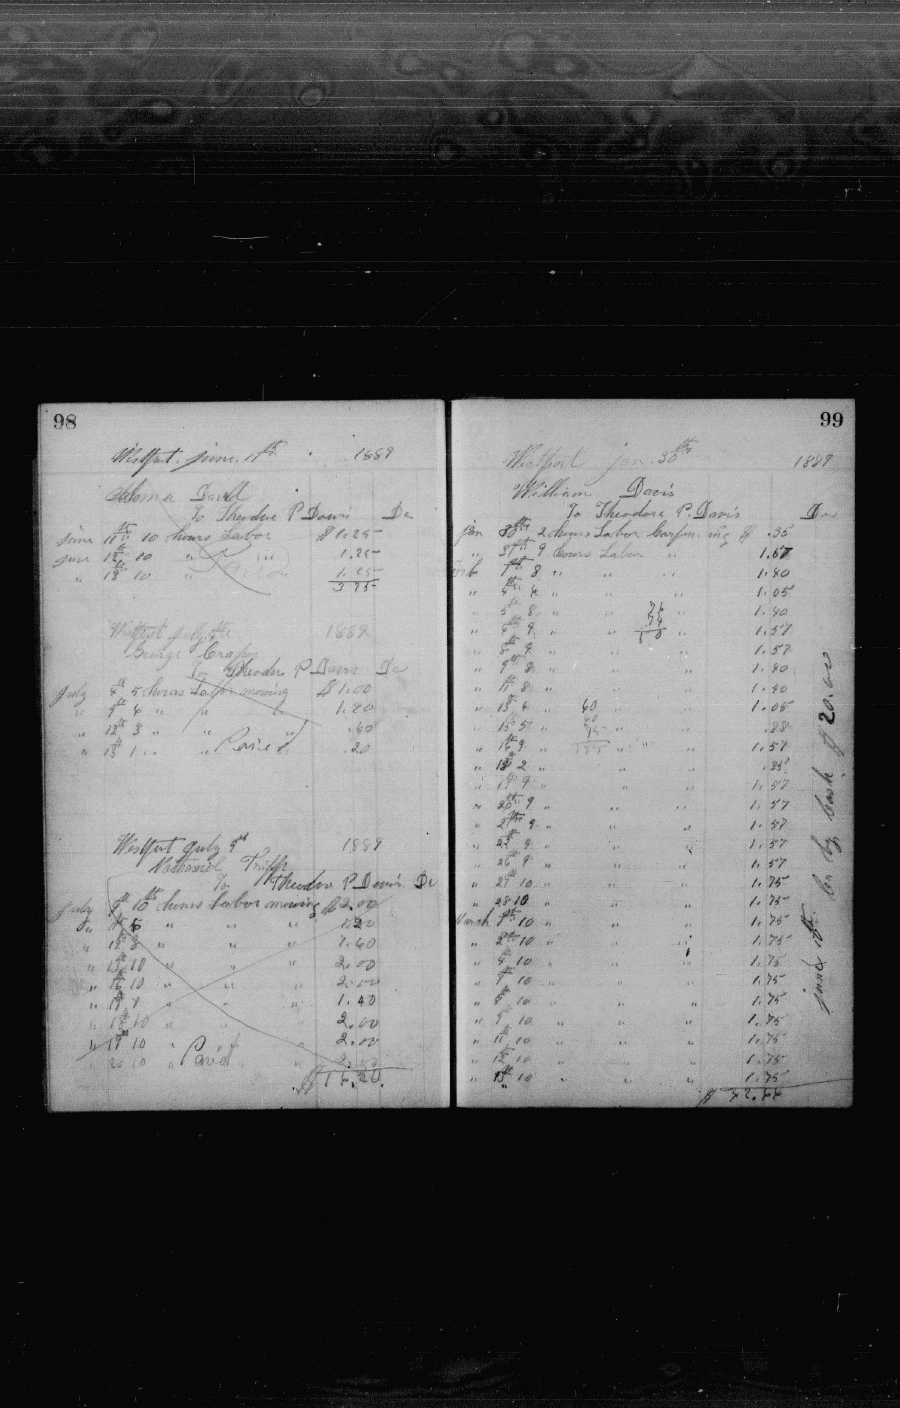 98
Westport. june. 11th 1889
Davll
To Theodore P Davis Dr
june 11th 10 hours Labor $1.25
june 12th 10 " " 1.25
" 13th 10 " " 1.25
Paied
3 75
Westport July 4th 1889
George
To Theodore P Davis Dr
July 4th 5 hours Labor mowing $1.00
" 9th 6 " " 1.20
" 12th 3 " " " .60
" 13th 1 " " .20
Paied
Westport July 9th 1889
Nathaniel Tripp
To Theodore P Davis Dr
July 9th 10 hours Labor mowing $2.00
" 6 " " " 1.20
" 8 " " " 1.60
" 15th 10 " " " 2.00
" 16th 10 " " " 2.00
" 17th 7 " " " 1.40
" 18th 10 " " 2.00
" 19th 10 " " " 2.00
" 20 10 " Paied " 2.00
$16.20
99
Westport jan. 30th 1889
William Davis
To Theodore P. Davis Dr
jan 30th 2 hours Labor Carpentering $ .35
" 31th 9 hours Labor " 1.57
Feb 1th 8 " " " 1.40
" 4th 6 " " " 1.05
" 5th 8 " " " 1.40
" 6th 9 " " " 1.57
" 8th 9 " " " 1.57
" 9th 8 " " " 1.40
" 11th 8 " " " 1.40
" 13th 6 " 60 " 1.05
" 15th 5 " " .88
" 16th 9 " " " 1.57
" 18th 2 " " " .35
" 19th 9 " " " 1.57
" 20th 9 " " " 1.57
" 21th 9 " " " 1.57
" 22th 9 " " " 1.57
" 26th 9 " " " 1.57
" 27th 10 " " " 1.75
" 28 10 " " " 1.75
March 1th 10 " " " 1.75
" 2nd 10 " " " 1.75
" 4th 10 " " " 1.75
" 7th 10 " " " 1.75
" 8th 10 " " " 1.75
" 9th 10 " " " 1.75
" 11th 10 " " " 1.75
" 12th 10 " " " 1.75
" 13th 10 " " " 1.75
$ 42.44
june 10th Cr by Cash $20.00